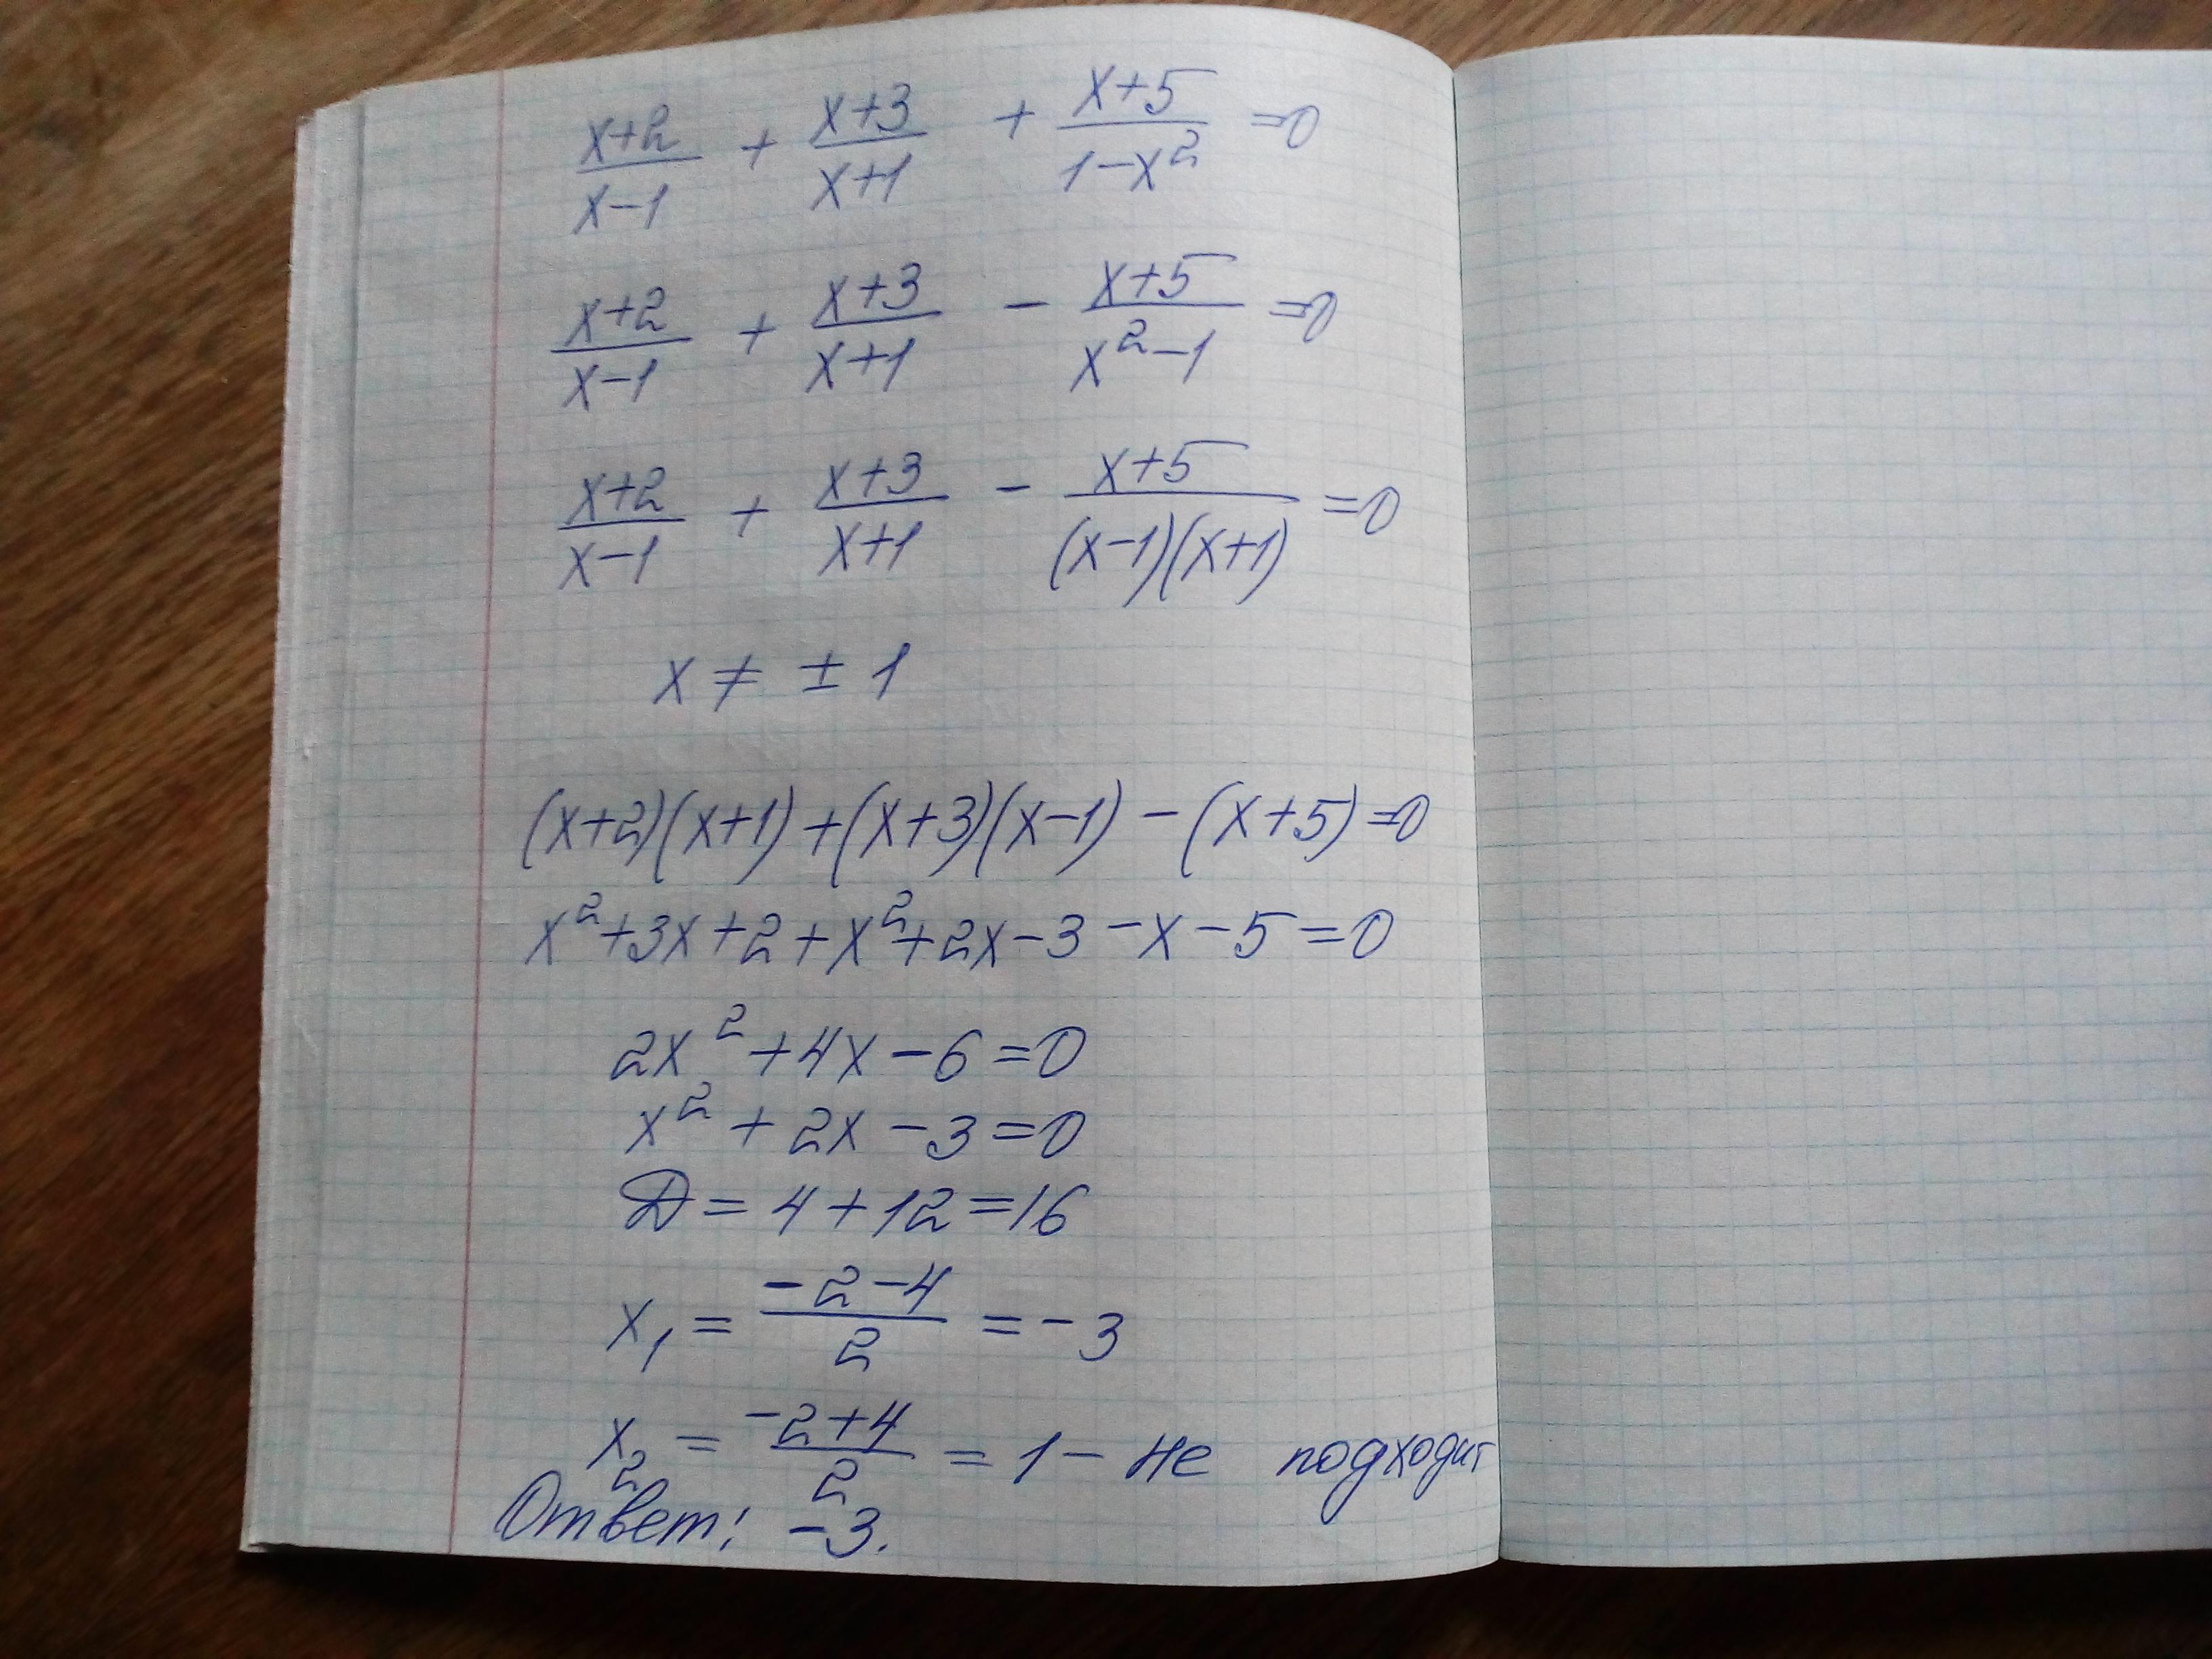 (x+2)/(x-1) + (x+3)/(x+1) + (x+5)/(1-x²) =0
(x+2)/(x-1) + (x+3)/(x+1) - (x+5)/(x²-1) =0
(x+2)/(x-1) + (x+3)/(x+1) - (x+5)/((x-1)(x+1)) =0
x ≠ ± 1
(x+2)(x+1)+(x+3)(x-1)-(x+5)=0
x²+3x+2+x²+2x-3-x-5=0
2x²+4x-6=0
x²+2x-3=0
D=4+12=16
x₁ = (-2-4)/2 = -3
x₂ = (-2+4)/2 = 1 - не подходит
Ответ: -3.